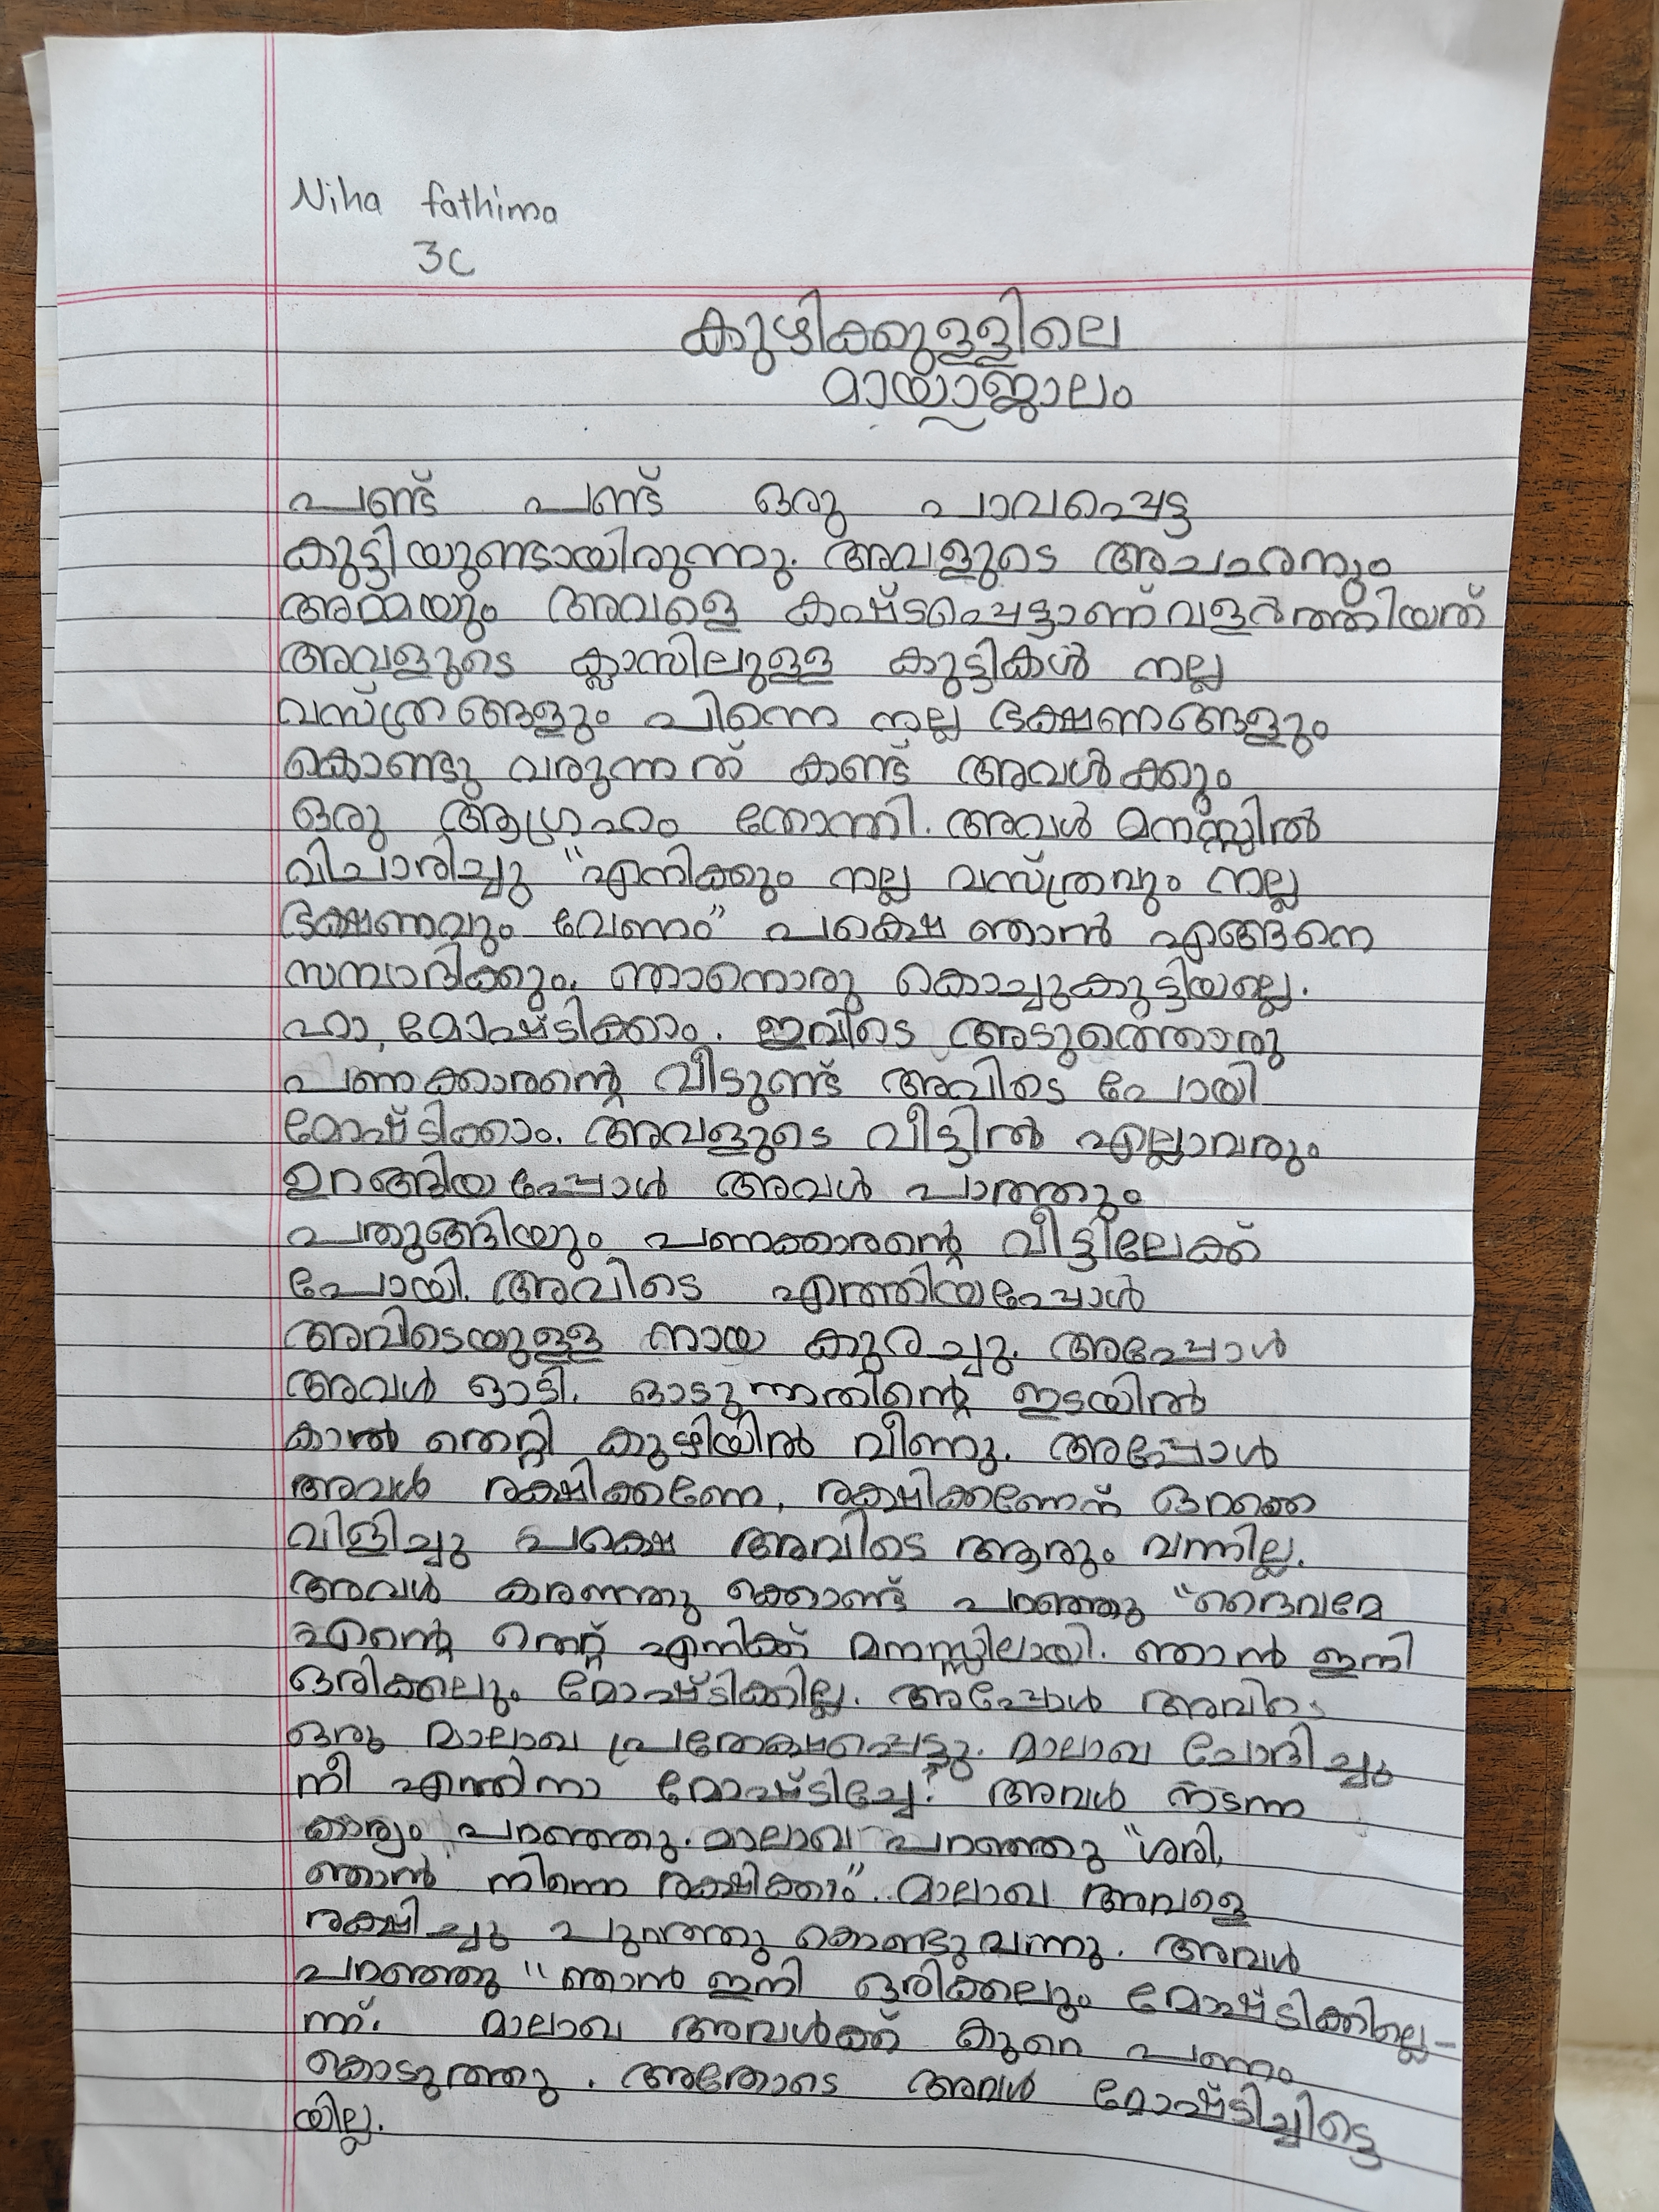 Niha fathima
3C
കുഴിക്കുള്ളിലെ
മായാജാലം
പണ്ട് പണ്ട് ഒരു പാവപ്പെട്ട
കുട്ടിയുണ്ടായിരുന്നു. അവളുടെ അചഛനും
അമ്മയും അവളെ കഷ്ടപ്പെട്ടാണ് വളർത്തിയത്
അവളുടെ ക്ലാസിലുള്ള കുട്ടികൾ നല്ല
വസ്ത്രങ്ങളും പിന്നെ നല്ല ഭക്ഷണങ്ങളും
കൊണ്ടു വരുന്നത് കണ്ട് അവൾക്കും
ഒരു ആഗ്രഹം തോന്നി. അവൾ മനസ്സിൽ
വിചാരിച്ചു "എനിക്കും നല്ല വസ്ത്രവും നല്ല
ഭക്ഷണവും വേണം" പക്ഷെ ഞാൻ എങ്ങനെ
സമ്പാദിക്കും. ഞാനൊരു കൊച്ചുകുട്ടിയല്ലെ.
ഹാ, മോഷ്ടിക്കാം. ഇവിടെ അടുത്തൊരു
പണക്കാരന്റെ വീടുണ്ട് അവിടെ പോയി
മോഷ്ടിക്കാം. അവളുടെ വീട്ടിൽ എല്ലാവരും
ഉറങ്ങിയപ്പോൾ അവൾ പാത്തും
പതുങ്ങിയും പണക്കാരന്റെ വീട്ടിലേക്ക്
പോയി. അവിടെ എത്തിയപ്പോൾ
അവിടെയുള്ള നായ കുരച്ചു. അപ്പോൾ
അവൾ ഓടി. ഓടുന്നതിന്റെ ഇടയിൽ
കാൽ തെറ്റി കുഴിയിൽ വീണു. അപ്പോൾ
അവൾ രക്ഷിക്കണേ, രക്ഷിക്കണേന്ന് ഒറക്കെ
വിളിച്ചു പക്ഷെ അവിടെ ആരും വന്നില്ല.
അവൾ കരഞ്ഞു ക്കൊണ്ട് പറഞ്ഞു "ദൈവമേ
എന്റെ തെറ്റ് എനിക്ക് മനസ്സിലായി. ഞാൻ ഇനി
ഒരിക്കലും മോഷ്ടിക്കില്ല. അപ്പോൾ അവിടെ
ഒരു മാലാഖ പ്രതേക്ഷപ്പെട്ടു. മാലാഖ ചോദിച്ചു
നീ എന്തിനാ മോഷ്ടിച്ചേ? അവൾ നടന്ന
കാര്യം പറഞ്ഞു. മാലാഖ പറഞ്ഞു "ശരി,
ഞാൻ നിന്നെ രക്ഷിക്കാം". മാലാഖ അവളെ
രക്ഷിച്ചു പുറത്തു കൊണ്ടുവന്നു. അവൾ
പറഞ്ഞു "ഞാൻ ഇനി ഒരിക്കലും മോഷ്ടിക്കില്ലെ-
ന്ന്. മാലാഖ അവൾക്ക് കുറെ പണം
കൊടുത്തു. അതോടെ അവൾ മോഷ്ടിച്ചിട്ടെ
യില്ല.